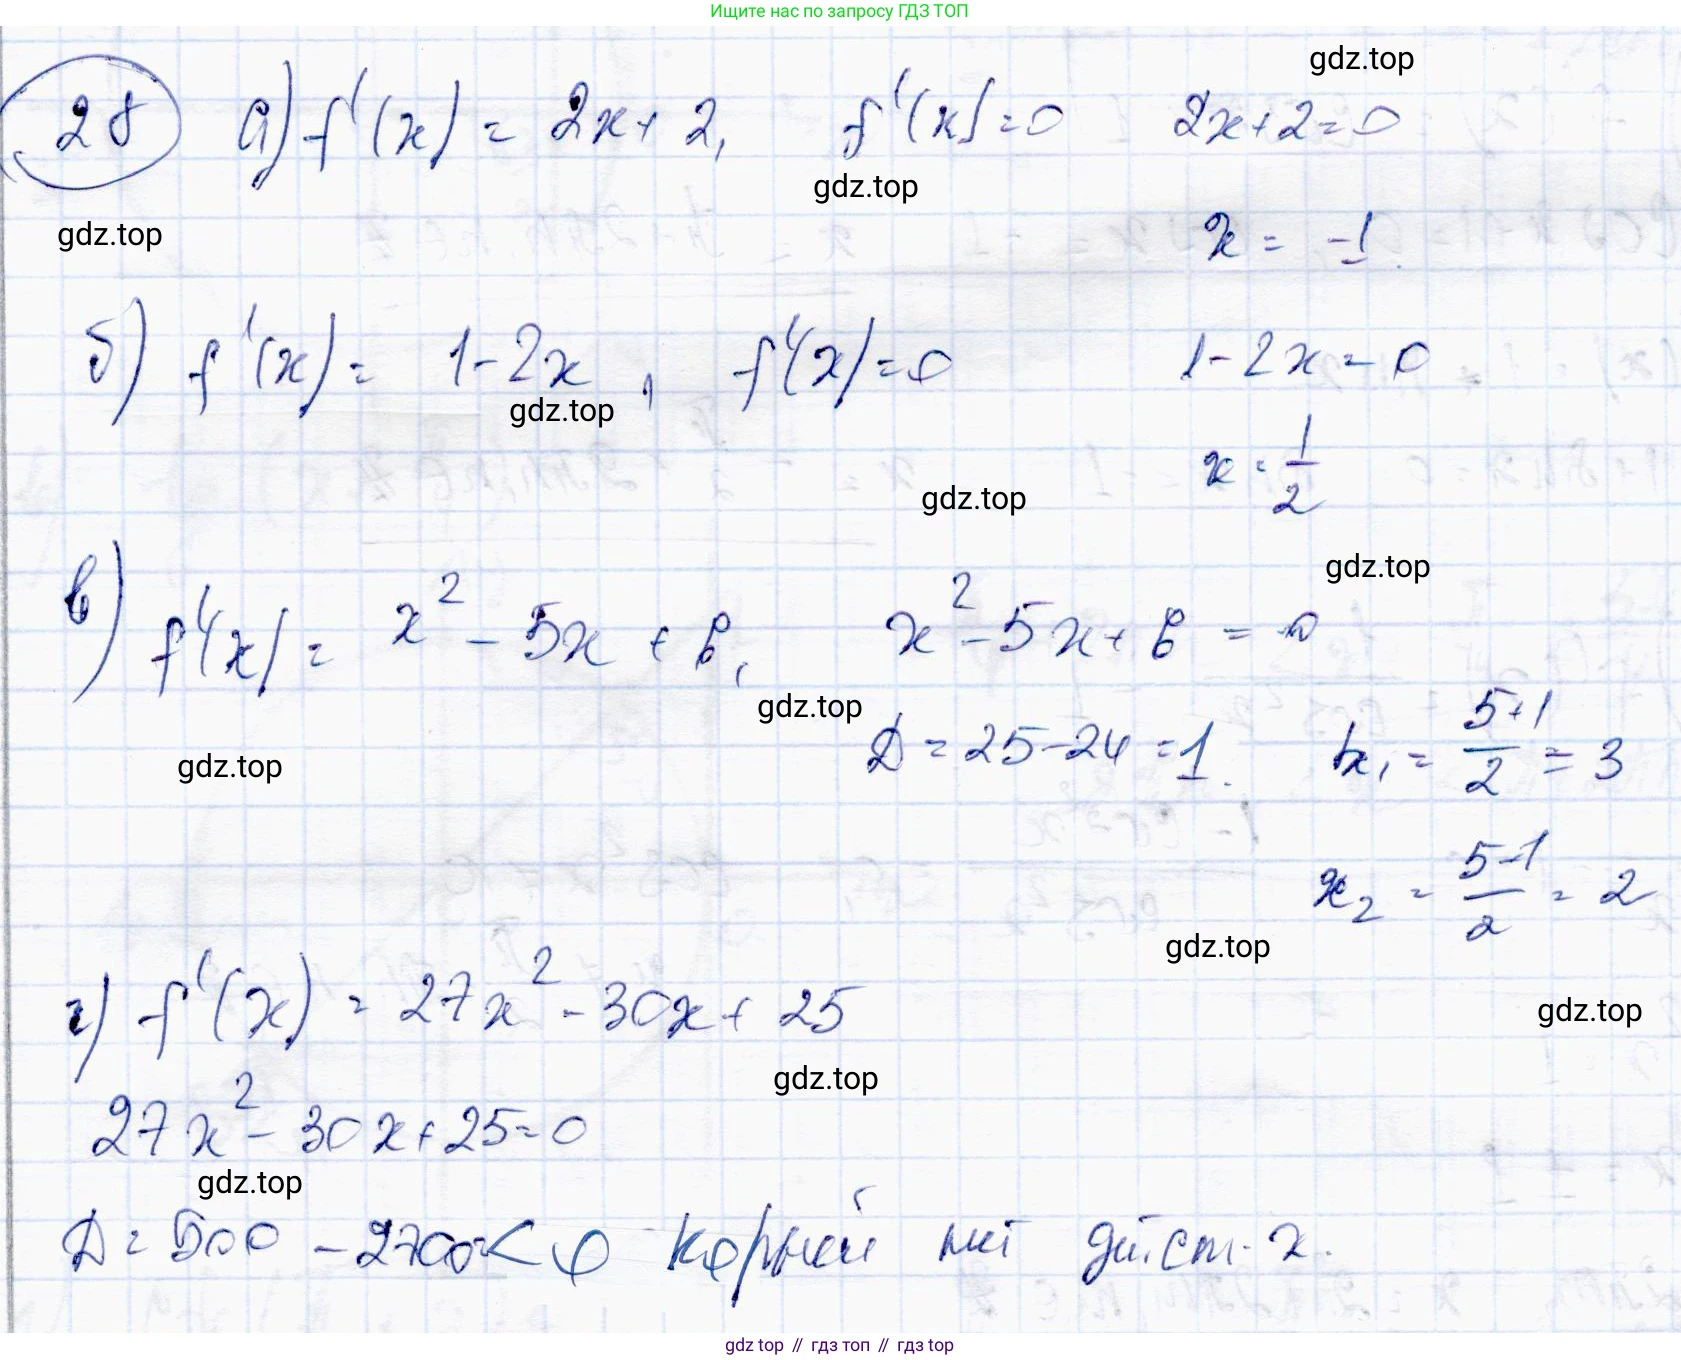 Ищите нас по запросу ГДЗ ТОП
gdz.top
28 а) f'(x) = 2x + 2, f'(x) = 0 2x + 2 = 0
gdz.top
gdz.top
x = -1.
б) f'(x) = 1 - 2x, f'(x) = 0 1 - 2x = 0
gdz.top
x = 1/2
gdz.top
gdz.top
в) f'(x) = x² - 5x + 6, x² - 5x + 6 = 0
gdz.top
D = 25 - 24 = 1. x₁ = (5+1)/2 = 3
gdz.top
x₂ = (5-1)/2 = 2
gdz.top
г) f'(x) = 27x² - 30x + 25
gdz.top
gdz.top
27x² - 30x + 25 = 0
gdz.top
D = 500 - 2700 < 0 корней нет
gdz top // гдз топ // гдз top